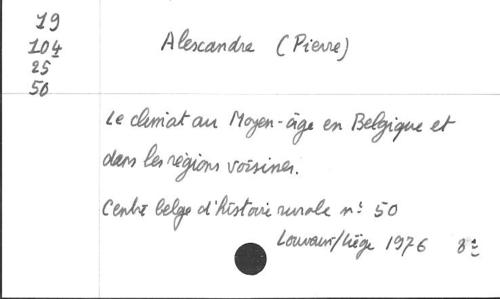 19
104
25
50
Alexandre (Pierre)
Le climat au Moyen-âge en Belgique et
dans les régions voisines.
Centre belge d'histoire rurale n° 50
Louvain/Liège 1976 8°